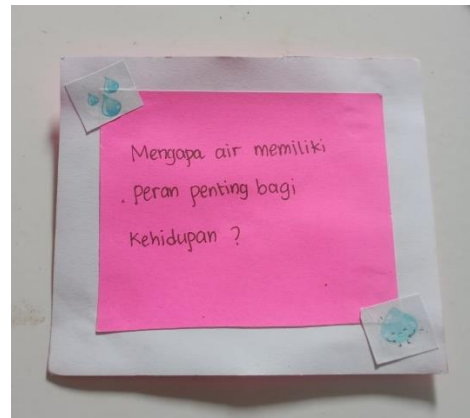 Mengapa air memiliki
peran penting bagi
kehidupan ?